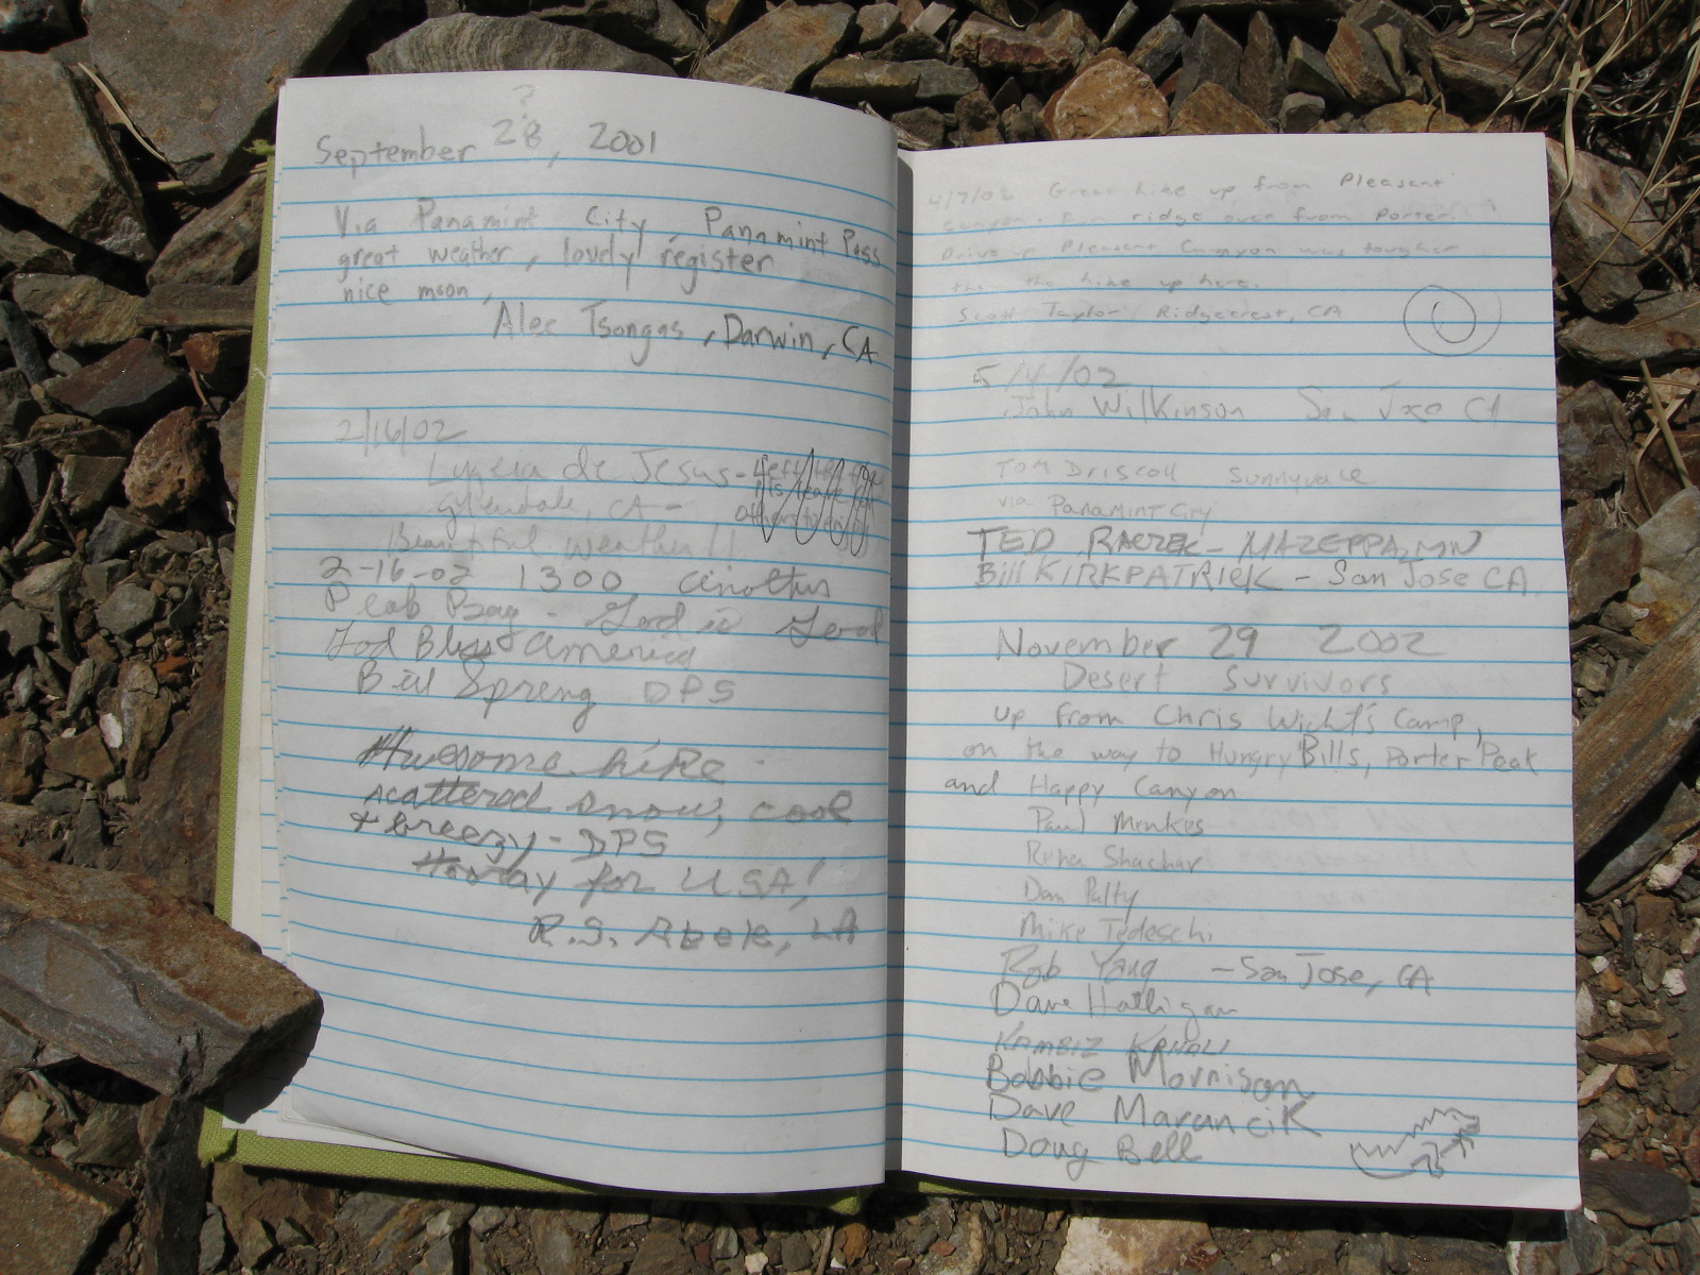 September 28, 2001
?
Via Panamint City, Panamint Pass
great weather, lovely register
nice moon,
Alec Tsongas, Darwin, CA
2/16/02
de Jesus -
Glendale, CA -
Beautiful weather!!
2-16-02 1300 another
Peak Bag - God is
God Bless America
Bill Spreng DPS
Awesome hike
scattered snow, cool
& breezy - DPS
Hooray for USA!
R.S. Abele, LA
4/7/02 Great hike up from Pleasant
Canyon. Fun ridge over from Porter.
Drive up Pleasant Canyon was tougher
than the hike up here.
Scott Taylor Ridgecrest, CA
5/4/02
John Wilkinson San Jose CA
Tom Driscoll Sunnyvale
via Panamint City
TED - MAZEPPA, MN
Bill KIRKPATRICK - San Jose CA
November 29 2002
Desert Survivors
up from Chris Wicht's Camp,
on the way to Hungry Bills, Porter Peak
and Happy Canyon
Paul Menkes
Shachar
Dan
Mike Tedeschi
Bob Yang - San Jose, CA
Dave Halligan
KAMBIZ
Bobbie Morrison
Dave Marancik
Doug Bell